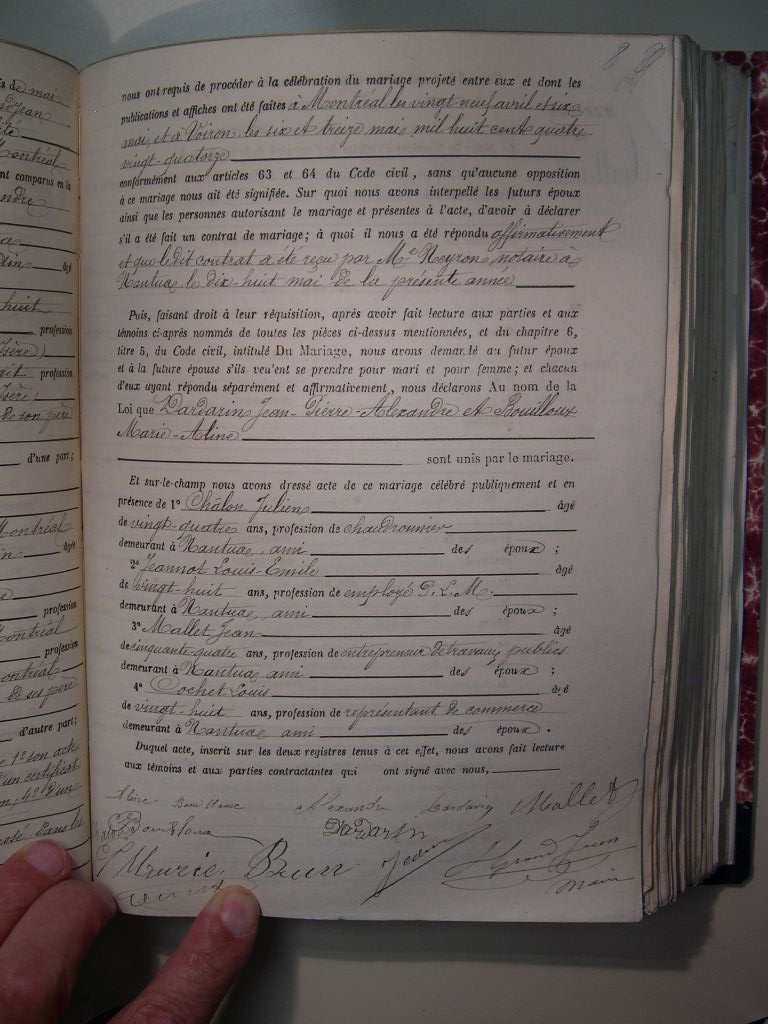 nous ont requis de procéder à la célébration du mariage projeté entre eux et dont les
publications et affiches ont été faites à Montréal les vingt-neuf avril et six
mai, et à Voiron les six et treize mai mil huit cent quatre
vingt-quatorze
conformément aux articles 63 et 64 du Code civil, sans qu'aucune opposition
à ce mariage nous ait été signifiée. Sur quoi nous avons interpellé les futurs époux
ainsi que les personnes autorisant le mariage et présentes à l'acte, d'avoir à déclarer
s'il a été fait un contrat de mariage; à quoi il nous a été répondu affirmativement
et que le dit contrat a été reçu par Me Neyron, notaire à
Nantua le dix-huit mai de la présente année
Puis, faisant droit à leur réquisition, après avoir fait lecture aux parties et aux
témoins ci-après nommés de toutes les pièces ci-dessus mentionnées, et du chapitre 6,
titre 5, du Code civil, intitulé Du Mariage, nous avons demandé au futur époux
et à la future épouse s'ils veulent se prendre pour mari et pour femme; et chacun
d'eux ayant répondu séparément et affirmativement, nous déclarons Au nom de la
Loi que Dardarin Jean-Pierre-Alexandre et Bouilloux
Marie-Aline
sont unis par le mariage.
Et sur-le-champ nous avons dressé acte de ce mariage célébré publiquement et en
présence de 1° Châlon Julien âgé
de vingt-quatre ans, profession de chaudronnier
demeurant à Nantua, ami des époux;
2° Jeannot Louis-Emile âgé
de vingt-huit ans, profession de employé P.L.M.
demeurant à Nantua, ami des époux;
3° Mallet Jean âgé
de cinquante-quatre ans, profession de entrepreneur de travaux publics
demeurant à Nantua ami des époux;
4° Cochet Louis âgé
de vingt-huit ans, profession de représentant de commerce
demeurant à Nantua ami des époux.
Duquel acte, inscrit sur les deux registres tenus à cet effet, nous avons fait lecture
aux témoins et aux parties contractantes qui ont signé avec nous,
Alexandre Dardarin Mallet
Dardarin
Brun
maire
de mai
Montréal
ont comparus en la
âgé
huit
profession
(Isère)
profession
de son père
d'une part;
Montréal
âgé
profession
Montréal
profession
Montréal
de ses père
d'autre part;
1° son acte